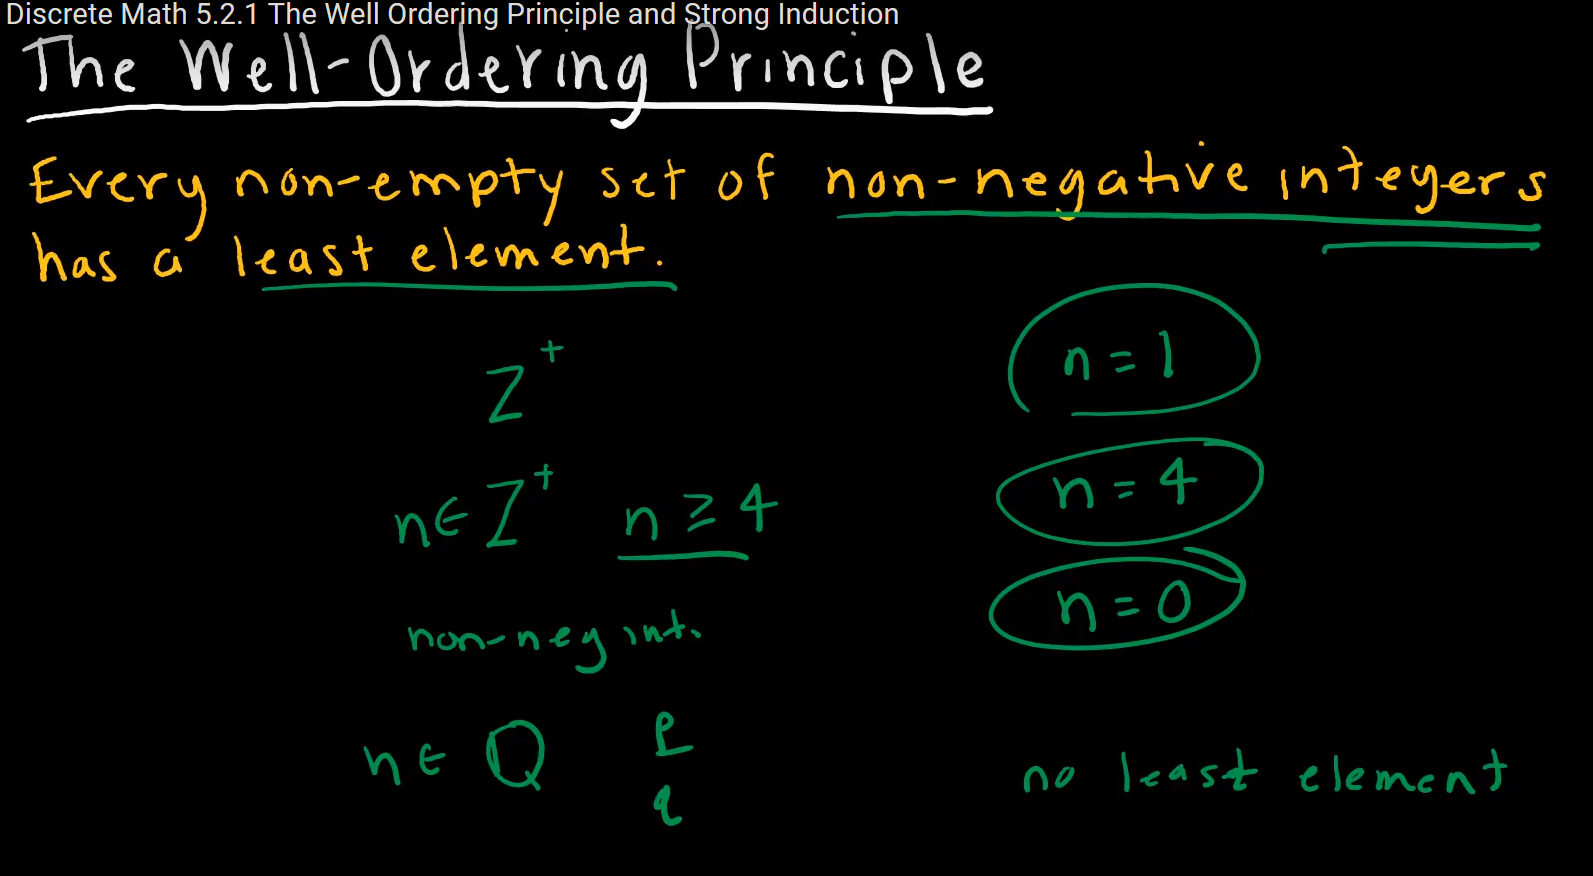 Discrete Math 5.2.1 The Well Ordering Principle and Strong Induction
The Well-Ordering Principle
Every non-empty set of non-negative integers
has a least element.
Z⁺ n = 1
n ∈ Z⁺ n ≥ 4 n = 4
non-neg int. n = 0
n ∈ Q p/q no least element